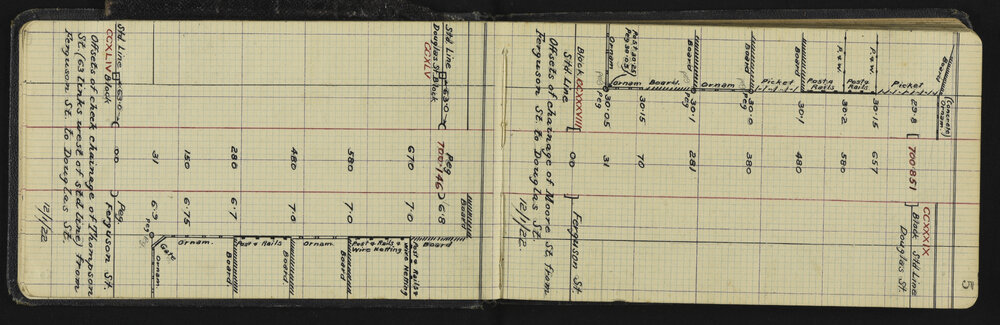 5
Board
(Concrete)
Ornam.
CCXXXIX
29·8 [ 700·851 ] Block Std Line
Douglas St.
Picket
R. & W. 30·15 657
Post & Rails
R. & W. 30·2 580
Post & Rails
Board 30·1 480
Picket
Board 30·0 380
peg
Ornam.
Board 30·1 281
Peg
peg
Board.
Ornam 30·15 70
Post 30·25
Peg 30·05
Ornam 30·05 31
peg Peg
Block CCXXXVIII [ 00 ] Ferguson St.
Std Line
Offsets of chainage of Moore St. from
Ferguson St. to Douglas St.
12/1/22
Board
Std Line 63·0 Peg 700·146 6·8
Douglas St. Block
CCXLV
Board
670 7·0 Post & Rails &
Wire Netting
Post & Rails &
Wire Netting
580 7·0 Board
Ornam.
480 7·0 Board
Post & Rails
280 6·7 Board
Ornam.
150 6·75
Gate
31 6·9 Peg Ornam
Peg
Std Line 63·0 00 Peg Ferguson St.
CCXLIV Block
Offsets of check chainage of Thompson
St. (63 links west of std line) from
Ferguson St. to Douglas St.
12/1/22